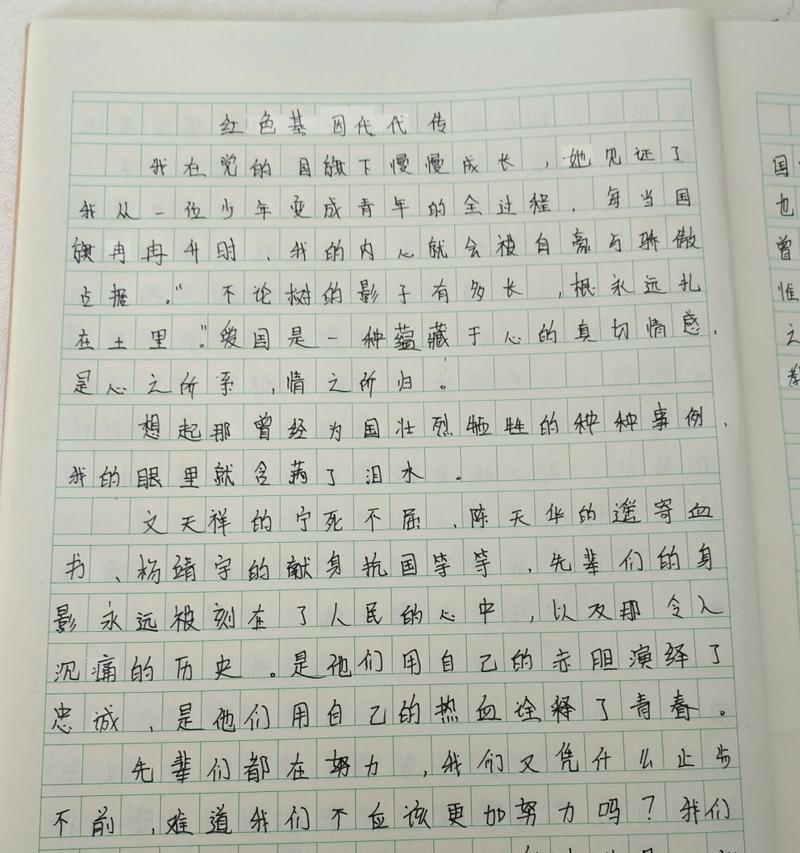 红色基因代代传
我在党的目旗下慢慢成长，她见证了
我从一位少年变成青年的全过程，每当国
旗冉冉升时、我的内心就会被自豪与骄傲
占据。“不论树的影子有多长，根永远扎
在土里。”爱国是一种蕴藏于心的真切情感，
是心之所系，情之所归。
想起那曾经为国壮烈牺牲的种种事例，
我的眼里就含满了泪水。
文天祥的宁死不屈、陈天华的遥寄血
书、杨靖宇的献身抗国等等，先辈们的身
影永远被刻在了人民的心中，以及那令人
沉痛的历史。是他们用自己的赤胆演绎了
忠诚，是他们用自己的热血诠释了青春。
先辈们都在努力，我们又凭什么止步
不前，难道我们不应该更加努力吗？我们
国
也
曾
惟
之